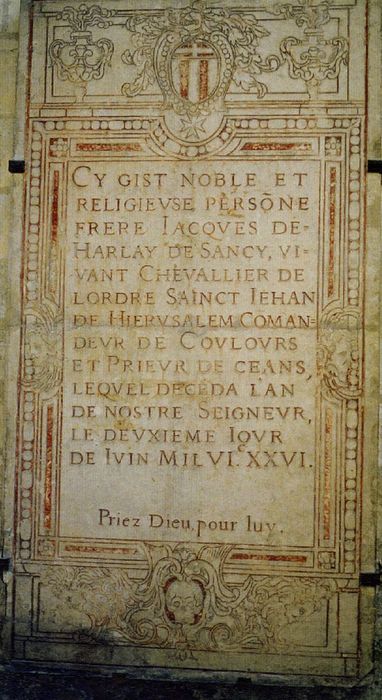 CY GIST NOBLE ET
RELIGIEVSE PERSÕNE
FRERE IACQVES DE=
HARLAY DE SANCY, VI=
VANT CHEVALLIER DE
LORDRE SAINCT IEHAN
DE HIERVSALEM COMAN=
DEVR DE COVLOVRS
ET PRIEVR DE CEANS,
LEQVEL DECEDA L'AN
DE NOSTRE SEIGNEVR,
LE DEVXIEME IOVR
DE IVIN MIL VI. XXVI.
Priez Dieu, pour luy.